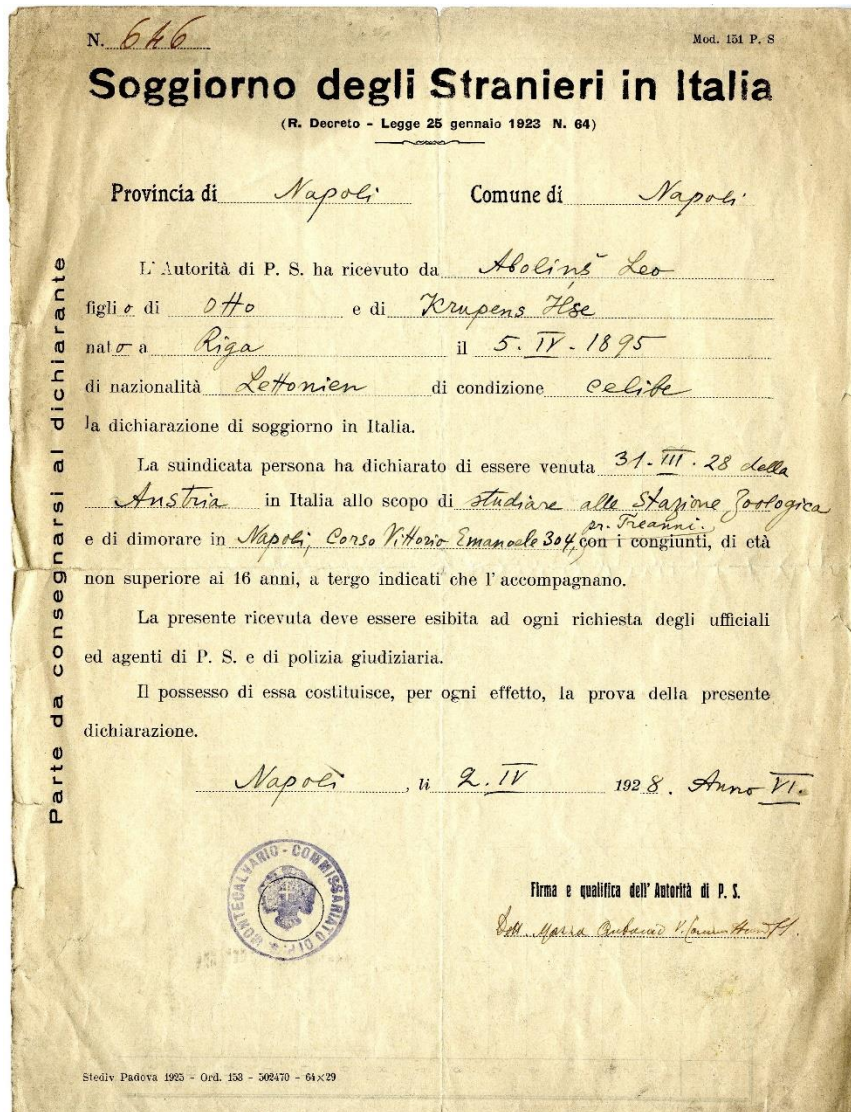 N. 646
Mod. 151 P. S
Soggiorno degli Stranieri in Italia
(R. Decreto - Legge 25 gennaio 1923 N. 64)
Provincia di Napoli Comune di Napoli
L'Autorità di P. S. ha ricevuto da Aboliņš Leo
figlio di Otto e di Krupens Ilse
nato a Riga il 5. IV. 1895
di nazionalità Lettonien di condizione celibe
la dichiarazione di soggiorno in Italia.
La suindicata persona ha dichiarato di essere venuta 31. III. 28 dalla
Austria in Italia allo scopo di studiare alle Stazione Zoologica
pr. Treanni.
e di dimorare in Napoli, Corso Vittorio Emanoele 304, con i congiunti, di età
non superiore ai 16 anni, a tergo indicati che l'accompagnano.
La presente ricevuta deve essere esibita ad ogni richiesta degli ufficiali
ed agenti di P. S. e di polizia giudiziaria.
Il possesso di essa costituisce, per ogni effetto, la prova della presente
dichiarazione.
Napoli, li 2. IV 1928. Anno VI.
MONTECALVARIO - COMMISSARIATO DI P.
Firma e qualifica dell'Autorità di P. S.
Dott.
Parte da consegnarsi al dichiarante
Stediv Padova 1925 - Ord. 153 - 502470 - 64×29